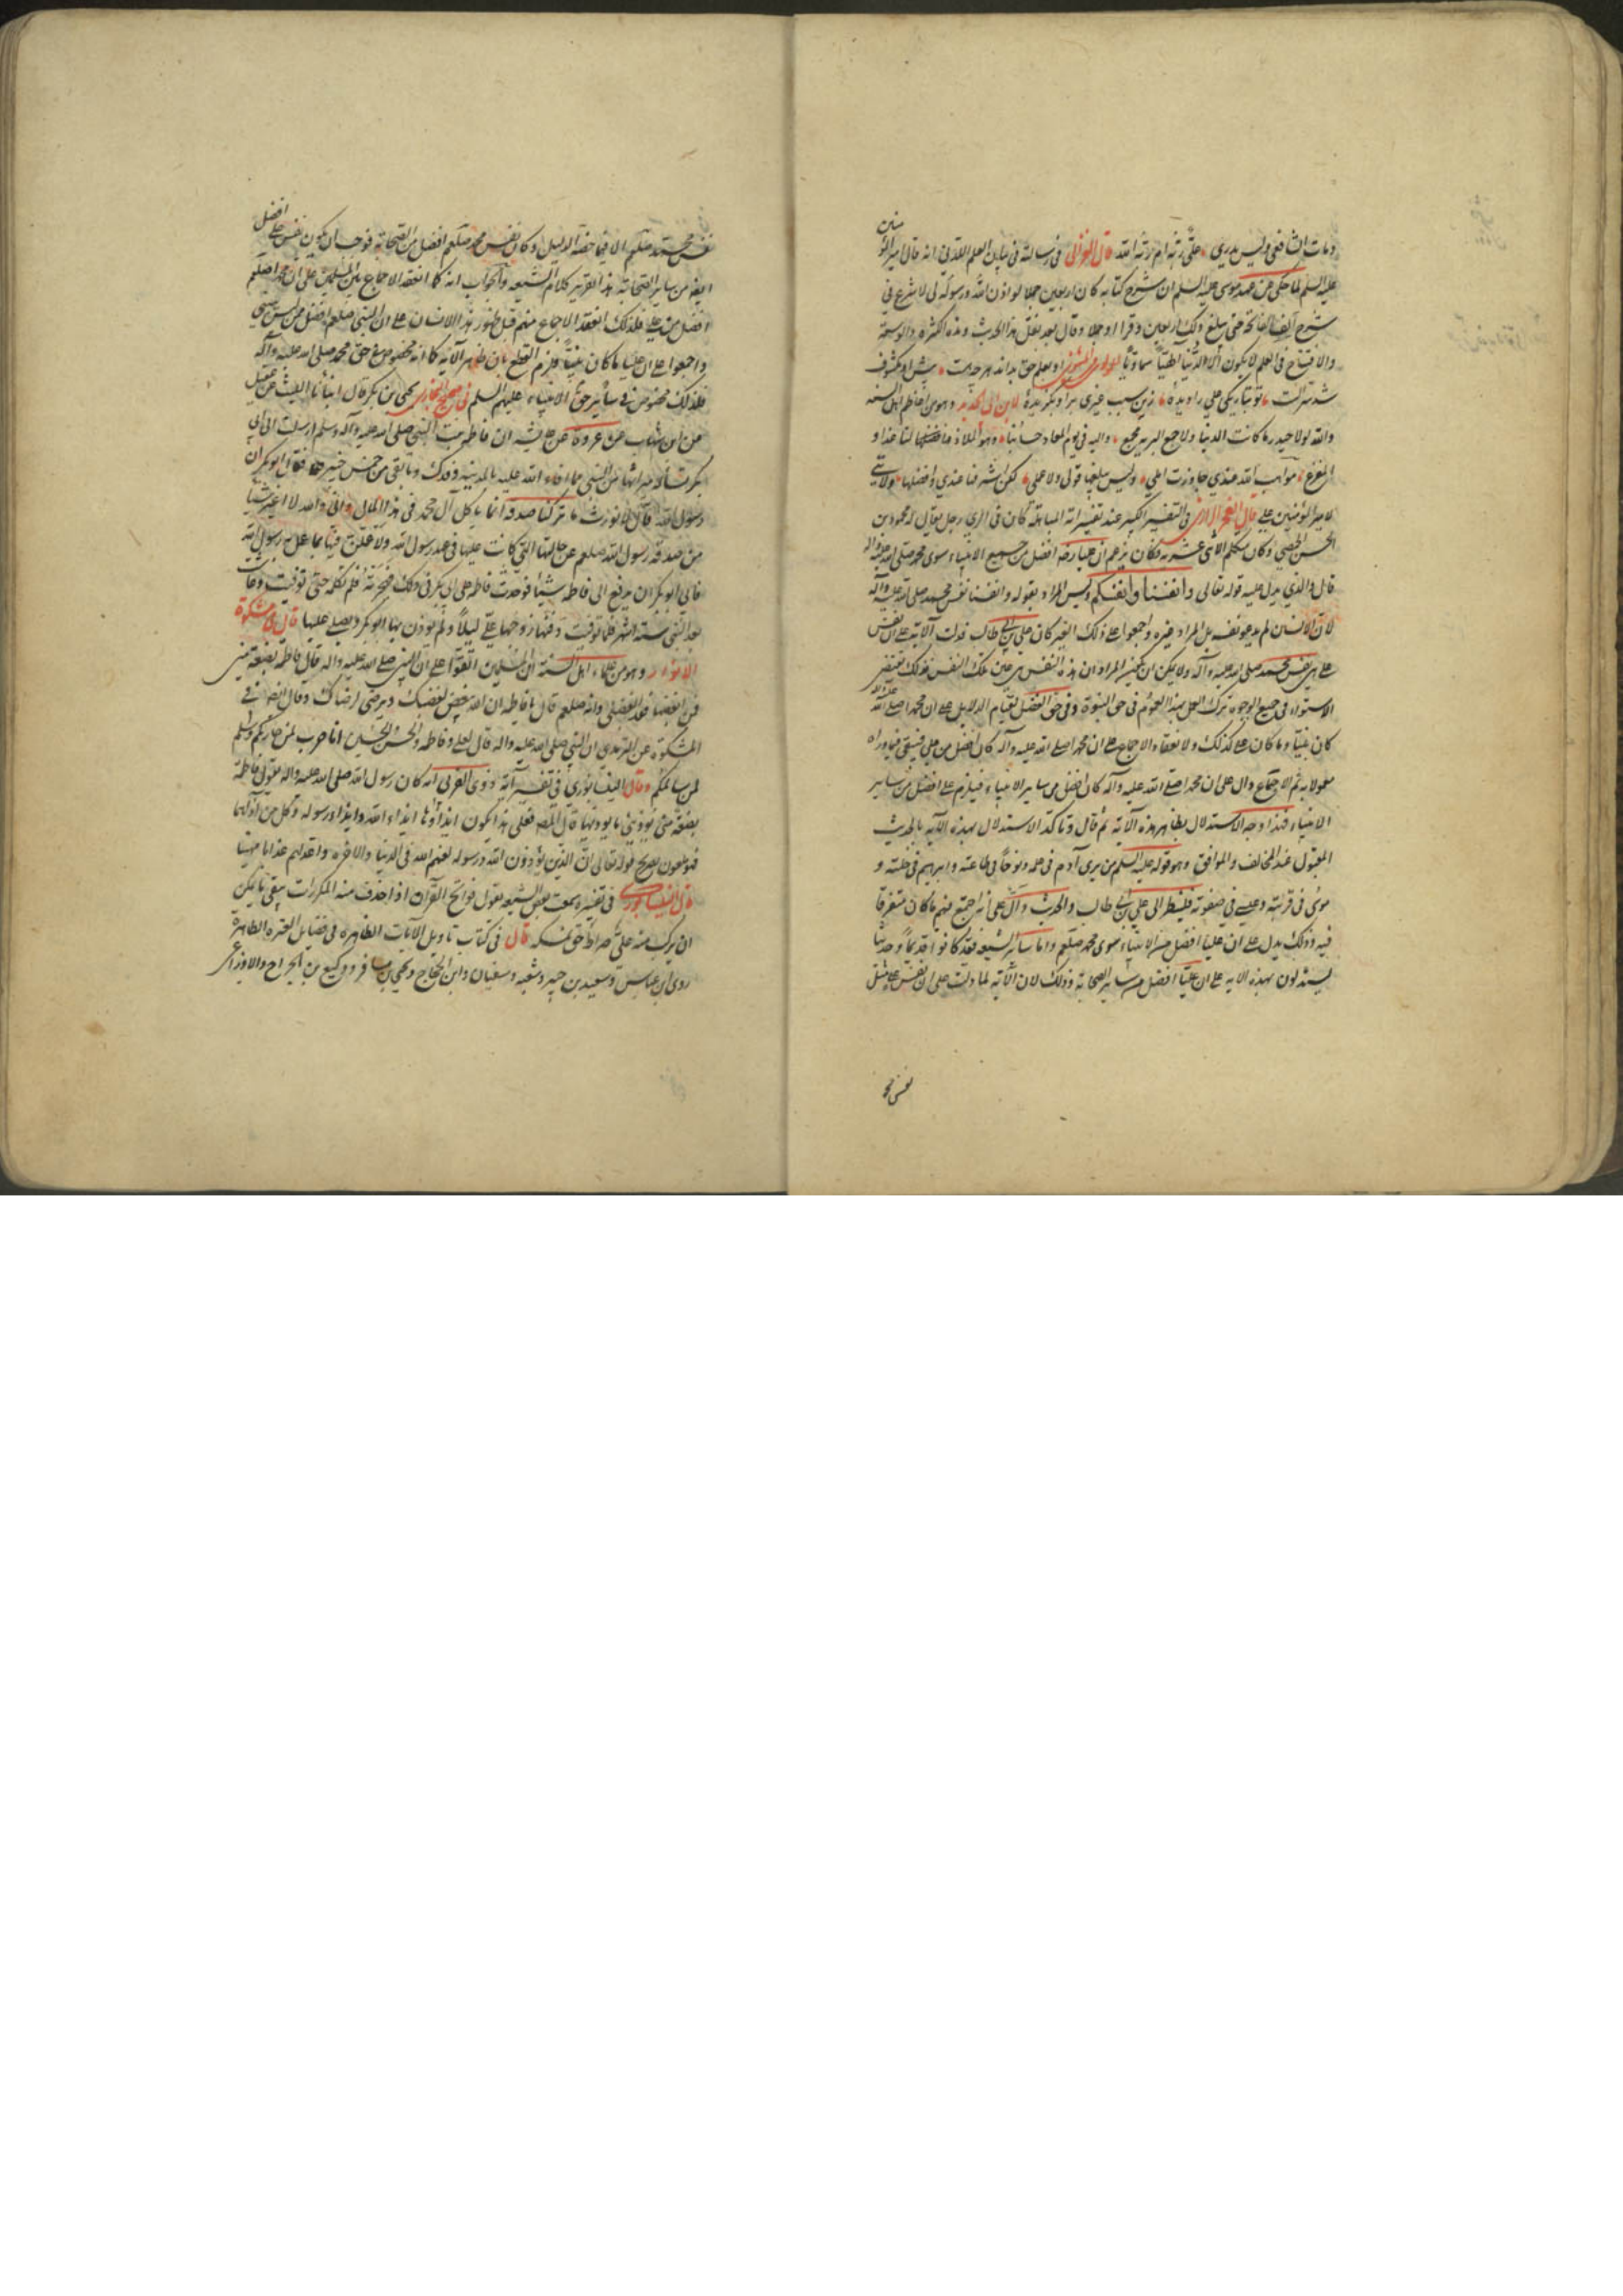 ومات الشافعي وليس يدري علي ربه ام ربه الله قال الغزالي في رسالته في بيان العلم اللدني انه قال امير المؤمنين
عليه السلم لما حكى عن عهد موسى عليه السلم ان شرح كتابه كان اربعين حملا لو اذن الله ورسوله لي لاشرع في
شرح الف الفاتحة حتى يبلغ ذلك اربعين وقرا او حملا وقال بعد نقل هذا الحديث وهذه الكثرة والوسعة
والافتتاح في العلم لا يكون الا لدنيا الهيا سماويا او بعلم حق
شد نزالت تو بتاريكي علي را ديدهٔ زين سبب غيرى برو بگزيدهٔ لابن ابي الحديد وهو من اهل السنه
والله لولا حيدر ما كانت الدنيا ولا جمع البرية مجمع واليه في يوم المعاد حسابنا وهو الملاذ لنا غدا و
المفزع مواهب الله عندي جاوزت املي وليس يبلغها قولي ولا عملي لكن اشرفها عندي وافضلها ولايتي
لامير المؤمنين علي قال الفخر الرازي في التفسير الكبير عند تفسير اية المباهلة كان في الري رجل يقال له محمود بن
الحسن الحمصي وكان متكلم الاثني عشرية وكان يزعم ان عليا رضه افضل من جميع الانبياء سوى محمد صلى الله عليه واله
قال والذي يدل عليه قوله تعالى وانفسنا وانفسكم وليس المراد بقوله وانفسنا نفس محمد صلى الله عليه وآله
لان الانسان لم يدعو نفسه بل المراد غيره واجمعوا على ذلك الغير كان علي بن ابي طالب فدلت الآية على ان نفس
علي هي نفس محمد صلى الله عليه وآله ولا يمكن ان يكون المراد ان هذه النفس هي عين تلك النفس فذلك يقتضي
الاستواء في جميع الوجوه ترك العمل بهذا العموم في حق النبوة وفي حق الفضل لقيام الدلايل على ان محمدا صلى الله عليه واله
كان نبيا وما كان علي كذلك ولانعقاد الاجماع على ان محمدا صلى الله عليه وآله كان افضل من علي فيبقى فيما وراه
معمولا به ثم الاجماع دال على ان محمدا صلى الله عليه وآله كان افضل من ساير الانبياء فيلزم علي افضل من ساير
الانبياء فهذا وجه الاستدلال بظاهر هذه الآية ثم قال وتاكد الاستدلال بهذه الآية بالحديث
المقبول عند المخالف والموافق وهو قوله عليه السلم من يرى آدم في علمه ونوحا في طاعته وابراهيم في خلته و
موسى في قربته وعيسى في صفوته فلينظر الى علي بن ابي طالب والحديث دال على انه جمع فيهم ما كان متفرقا
فيه وذلك يدل على ان عليا افضل من الانبياء سوى محمد صلعم واما سائر الشيعه فقد كانوا قديما وحديثا
يستدلون بهذه الايه على ان عليا افضل من ساير الصحابة وذلك لان الآية لما دلت على ان نفس علي مثل
نفس محمد
نفس محمد صلعم الا فيما خصه الدليل وكان نفس محمد صلعم افضل من الصحابة فوجب ان يكون نفس علي افضل
ايضا من ساير الصحابة هذا تقرير كلام الشيعه والجواب انه كما انعقد الاجماع بين المسلمين على ان محمدا صلعم
افضل من علي فلذلك انعقد الاجماع منهم قبل ظهور هذا الانسان على ان النبي صلعم افضل ممن ليس بنبي
واجمعوا على ان عليا ما كان نبيا فلزم القطع بان ظاهر الآية كما انه مخصوص في حق محمد صلى الله عليه وآله
فلذلك مخصوص في سائر حق الانبياء عليهم السلم في صحيح البخاري يحيى بن بكر قال انبأنا الليث عن عقيل
عن ابن شهاب عن عروة عن عايشه ان فاطمه بنت النبي صلى الله عليه وآله وسلم ارسلت الى ابي
بكر تسأله ميراثها من النبي مما افاء الله عليه بالمدينه وفدك وما بقي من خمس خيبر فقال ابو بكر ان
رسول الله قال لا نورث ما تركنا صدقه انما ياكل آل محمد في هذا المال واني والله لا اغير شيئا
من صدقة رسول الله صلعم عن حالتها التي كانت عليها في عهد رسول الله ولا عملن فيها بما عمل به رسول الله
فابى ابو بكر ان يدفع الى فاطمه شيئا فوجدت فاطمه على ابي بكر في ذلك فهجرته فلم تكلمه حتى توفيت وعاشت
بعد النبي ستة اشهر فلما توفيت دفنها زوجها علي ليلا ولم يؤذن بها ابو بكر ويصلي عليها قال في مشكوة
الانوار وهو من علماء اهل السنة ان المسلمين اتفقوا على ان النبي صلى الله عليه واله قال فاطمه بضعة مني
فمن ابغضها فقد ابغضني وانه صلعم قال يا فاطمه ان الله يغضب لغضبك ويرضى لرضاك وقال ايضا في
المشكوة عن الترمدي ان النبي صلى الله عليه واله قال لعلي وفاطمه والحسن والحسين انا حرب لمن حاربكم وسلم
لمن سالمكم وقال النيسابوري في تفسير آية ذوي القربى انه كان رسول الله صلى الله عليه واله يقول فاطمة
بضعة مني يؤذيني ما يوذيها فعلى هذا يكون ايذاؤها ايذاء الله وايذاء رسوله وكل من آذاهما
فهو ملعون بصريح قوله تعالى ان الذين يؤذون الله ورسوله لعنهم الله في الدنيا والاخرة واعد لهم عذابا مهينا
قال النيسابوري في تفسيره سمعت بعض الشيعه يقول فواتح القرآن اذا حذف منه المكررات يبقى ما يمكن
ان يركب منه علي صراط حق نمسكه قال في كتاب تاويل الآيات الظاهره في فضايل العترة الطاهرة
روى ابن عباس وسعيد بن جبير وشعبه وسفيان وابن الحجاج ويحيى بن ووكيع بن الجراح والاوزاعي